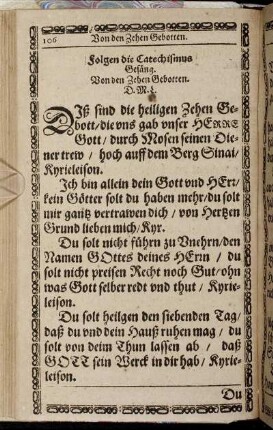 106 Von den Zehen Gebotten.
Folgen die Catechismus
Gesäng.
Von den Zehen Gebotten.
D. M. L.
Diß sind die heiligen Zehen Ge-
bott/die vns gab vnser HERRE
Gott/durch Mosen seinen Die-
ner trew / hoch auff dem Berg Sinai/
Kyrieleison.
Ich bin allein dein Gott vnd HErr/
kein Götter solt du haben mehr/du solt
mir gantz vertrawen dich / von Hertzen
Grund lieben mich/Kyr.
Du solt nicht führn zu Vnehrn/den
Namen GOttes deines HErn / du
solt nicht preisen Recht noch Gut/ohn
was Gott selber redt vnd thut / Kyrie-
leison.
Du solt heilgen den siebenden Tag/
daß du vnd dein Hauß ruhen mag / du
solt von deim Thun lassen ab / daß
GOTT sein Werck in dir hab/ Kyrie-
leison.
Du